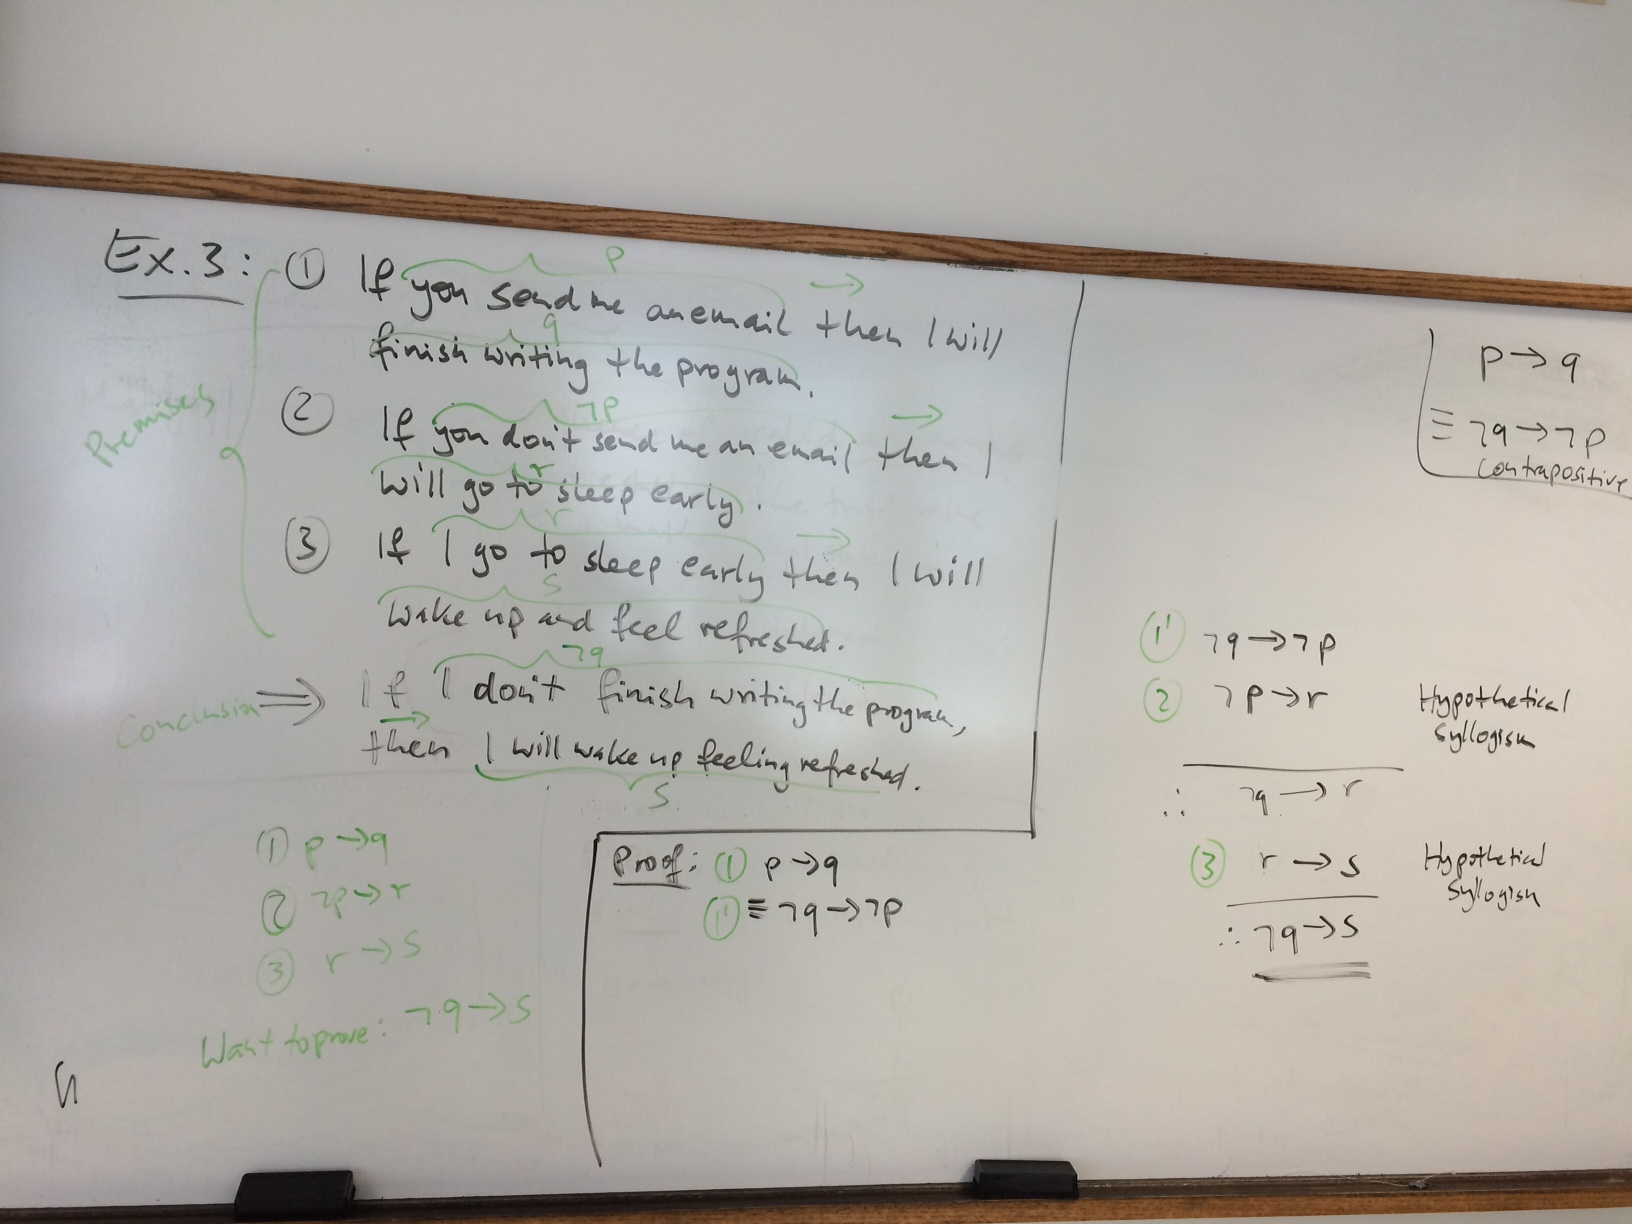 Ex.3: ① If you send me an email then I will
p →
finish writing the program.
q
② If you don't send me an email then I
¬p →
will go to sleep early.
r
③ If I go to sleep early then I will
r →
wake up and feel refreshed.
s
Premises
Conclusion ⇒ If I don't finish writing the program,
¬q
→
then I will wake up feeling refreshed.
s
① p → q
② ¬p → r
③ r → s
Want to prove: ¬q → s
Proof: ① p → q
①' ≡ ¬q → ¬p
p → q
≡ ¬q → ¬p
Contrapositive
①' ¬q → ¬p
② ¬p → r
Hypothetical
Syllogism
∴ ¬q → r
③ r → s
Hypothetical
Syllogism
∴ ¬q → s